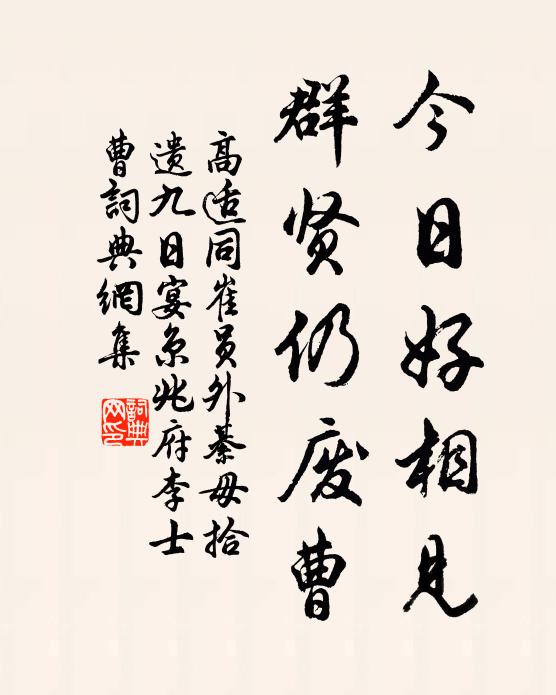 今日好相見
群贤仍废曹
高适同崔員外綦毋拾
遗九日宴京兆府李士
曹詞典網集
詞典網印